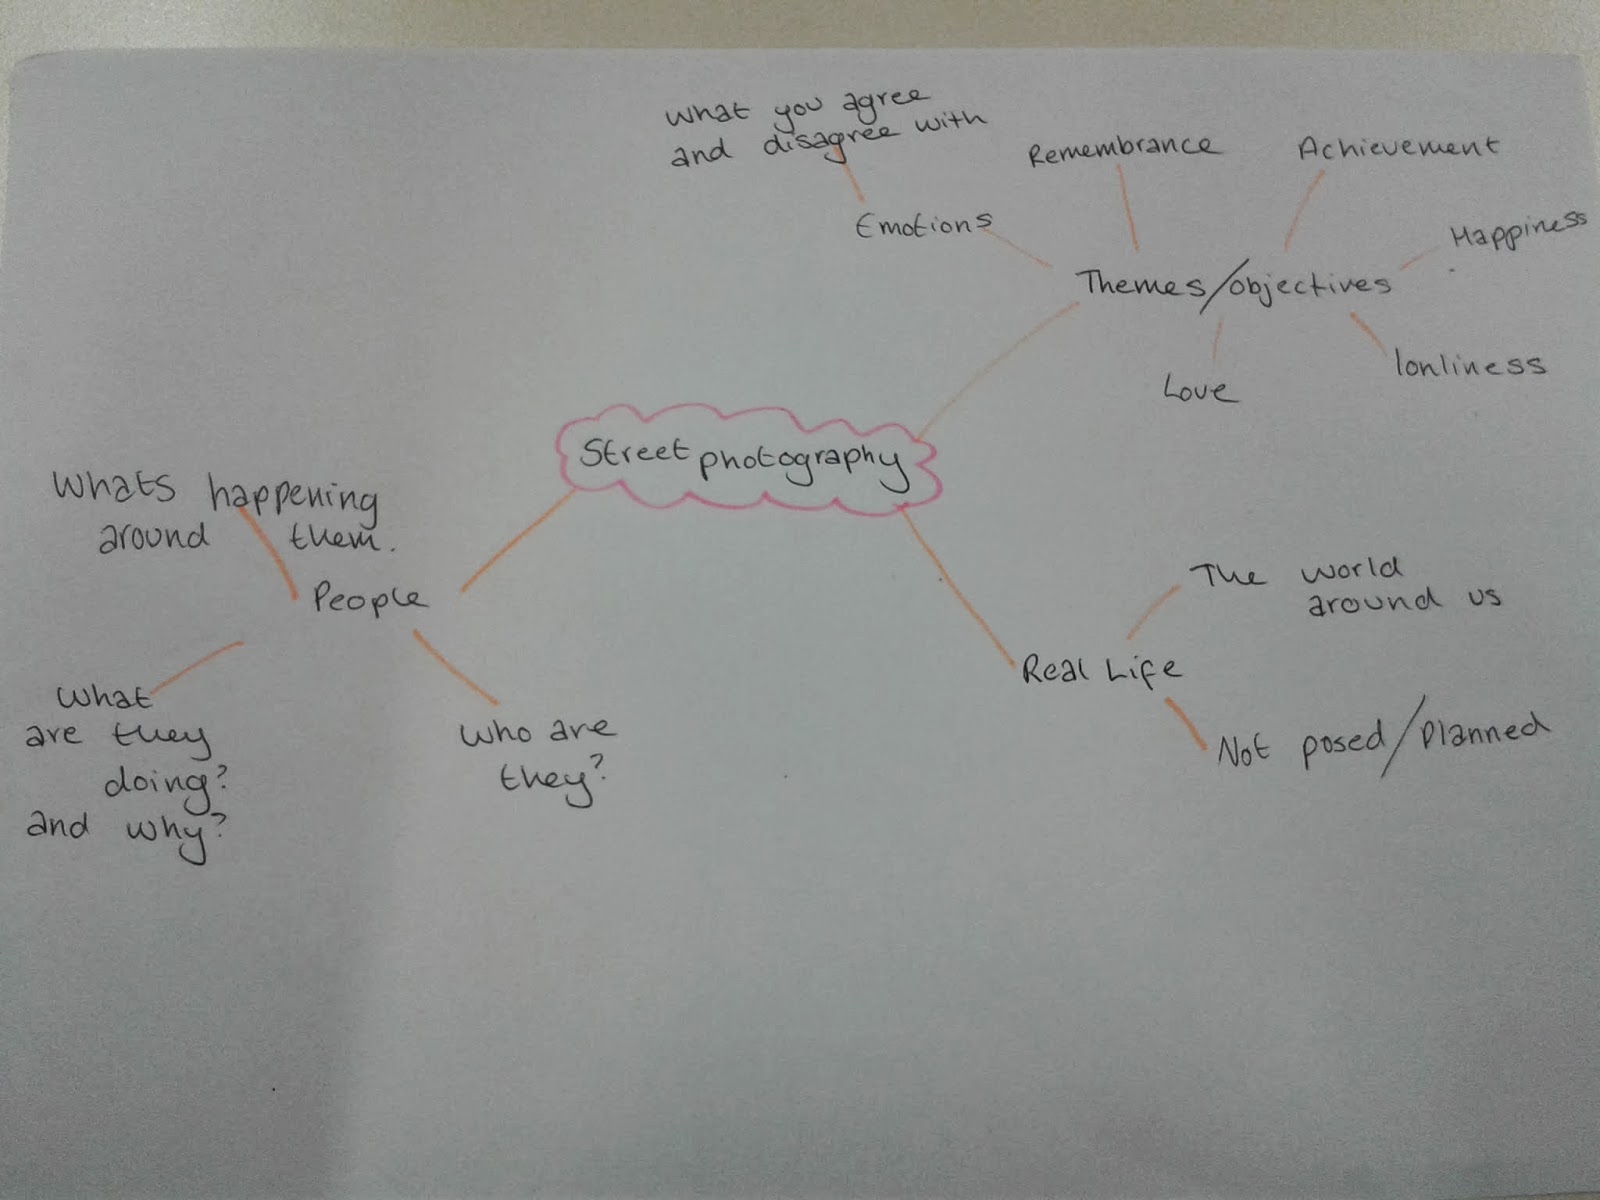 What you agree
and disagree with
Remembrance
Achievement
Emotions
Happiness
Themes/objectives
lonliness
Love
Street photography
Whats happening
around them.
People
The world
around us
Real Life
What
are they
doing?
and why?
Who are
they?
Not posed/planned